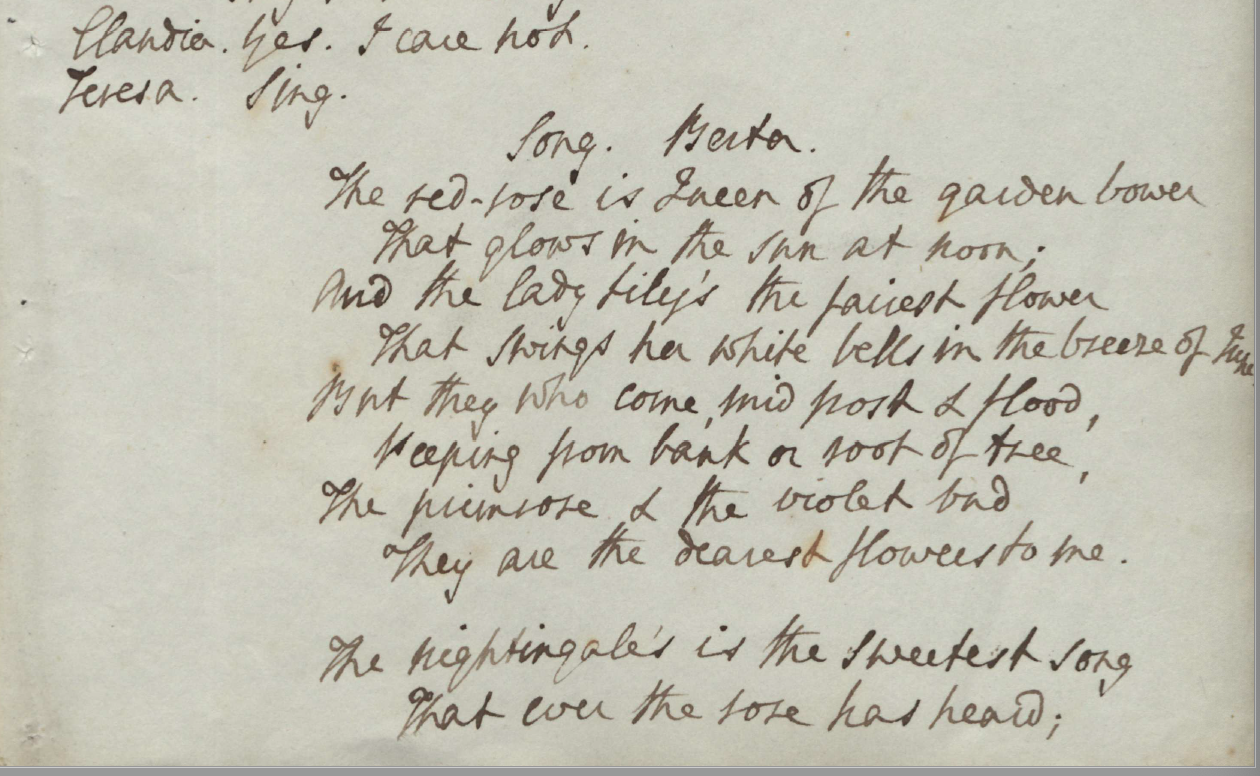 Claudia. Yes. I care not.
Teresa. Sing.
Song. Berta.
The red-rose is Queen of the garden bower
That glows in the sun at noon;
And the lady lily's the fairest flower
That swings her white bells in the breeze of June
But they who come, mid frost & flood,
Peeping from bank or root of tree,
The primrose & the violet bud
They are the dearest flowers to me.
The nightingale's is the sweetest song
That ever the rose has heard;